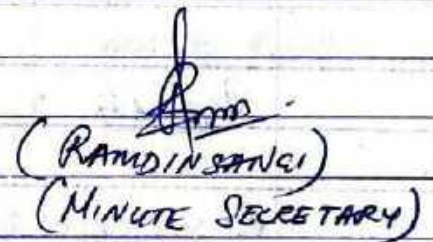 (RAMDINSANGI)
(MINUTE SECRETARY)